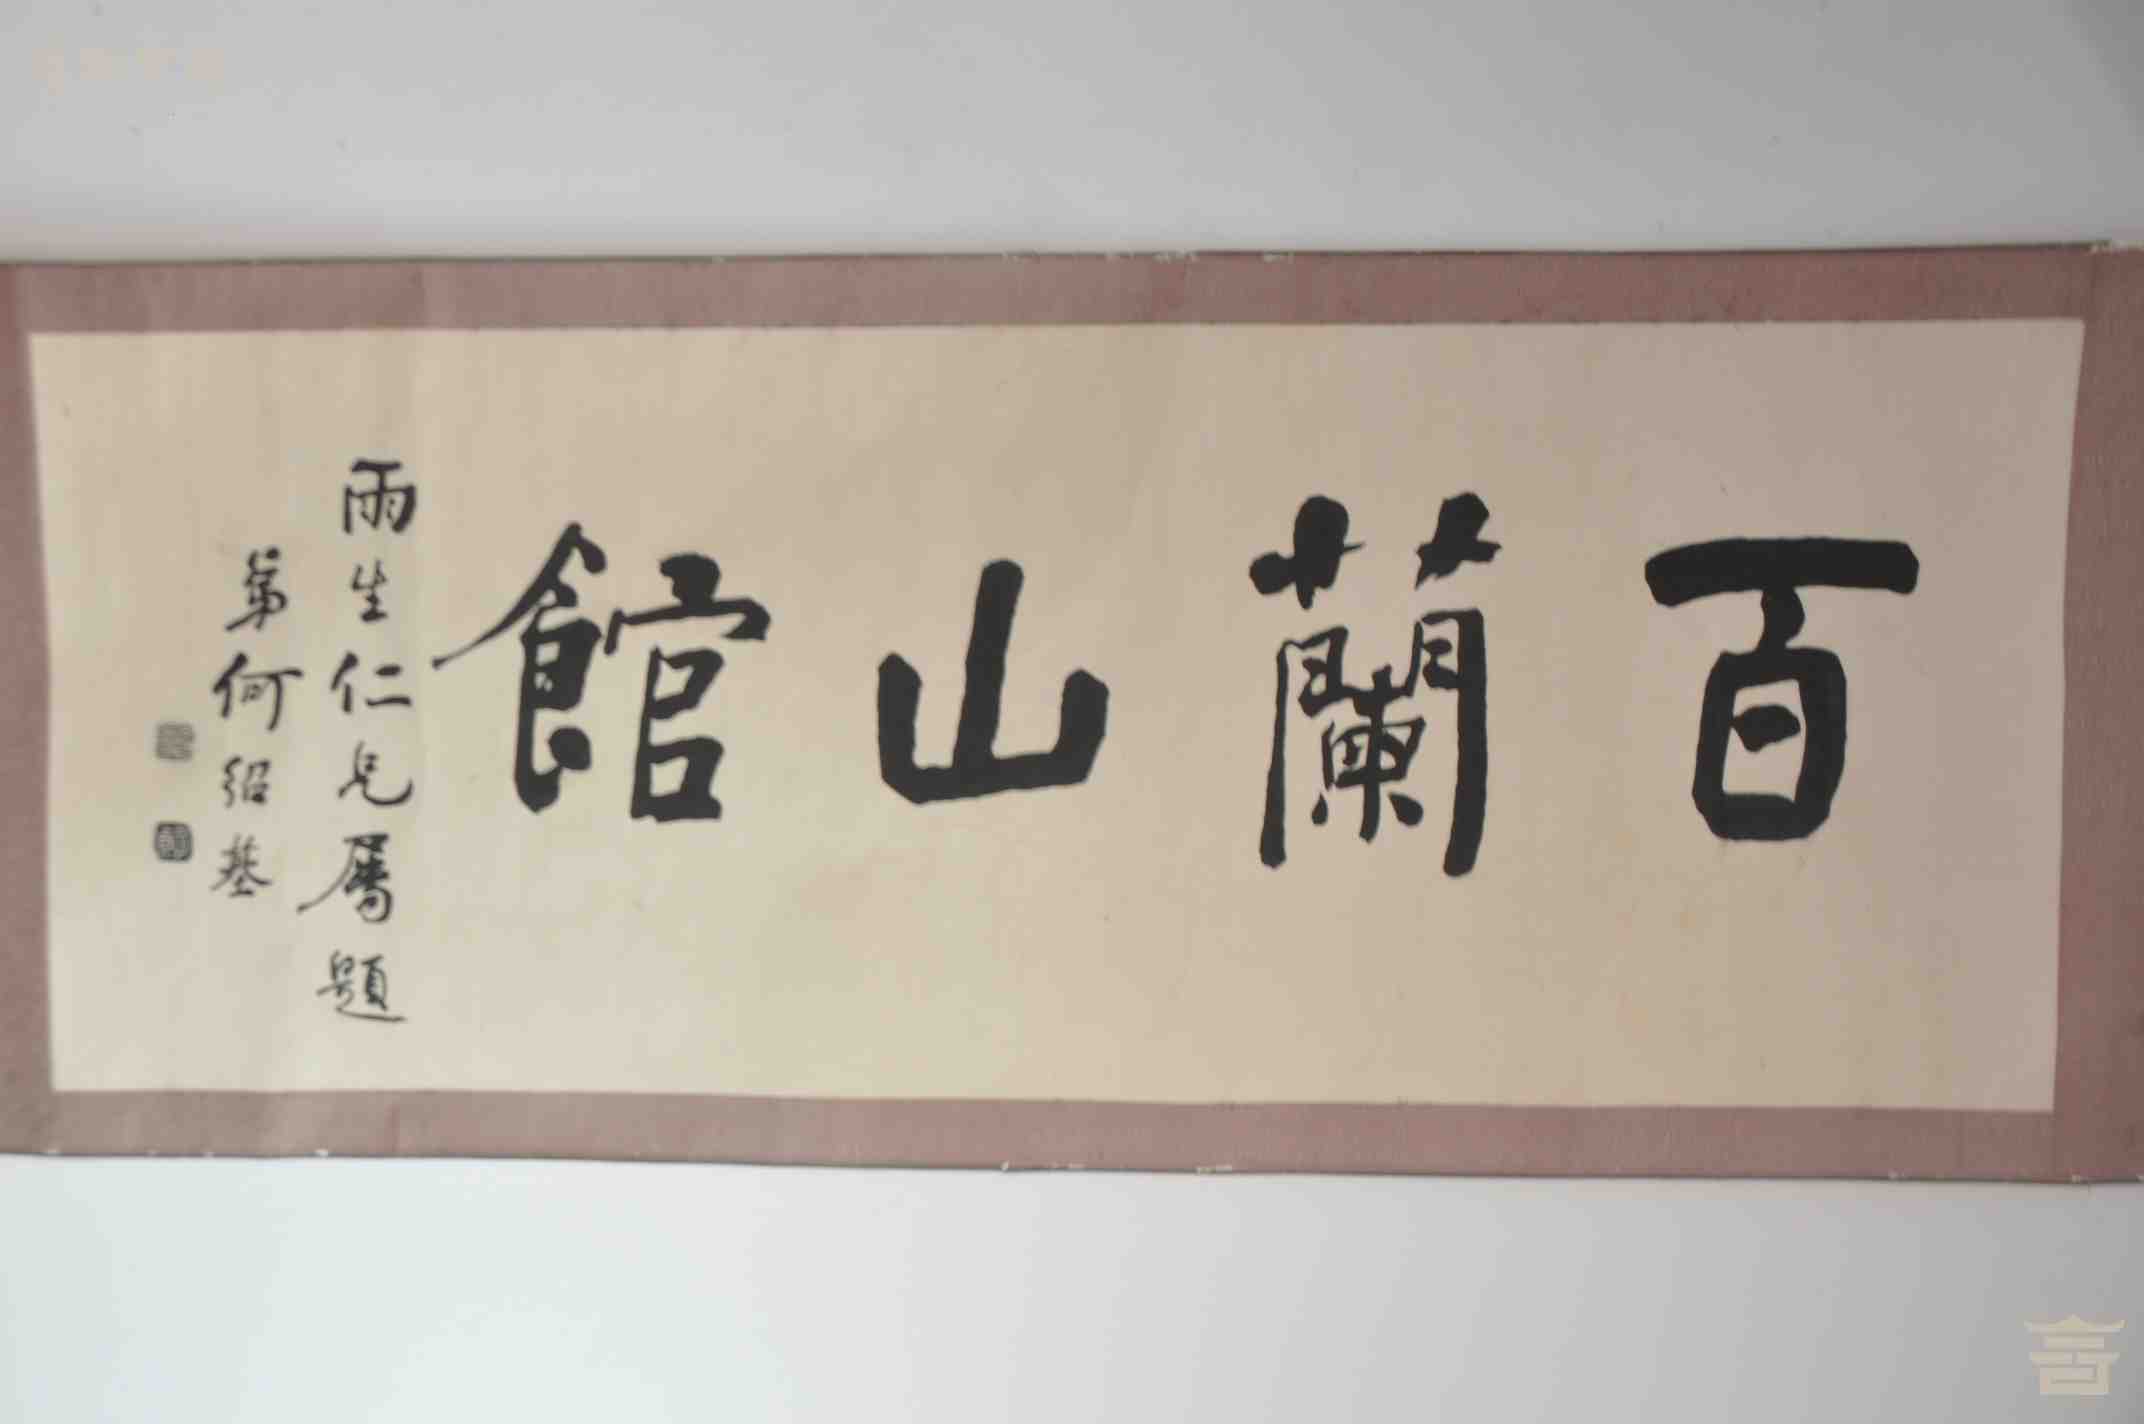 百蘭山館
雨生仁兄屬題
弟何紹基